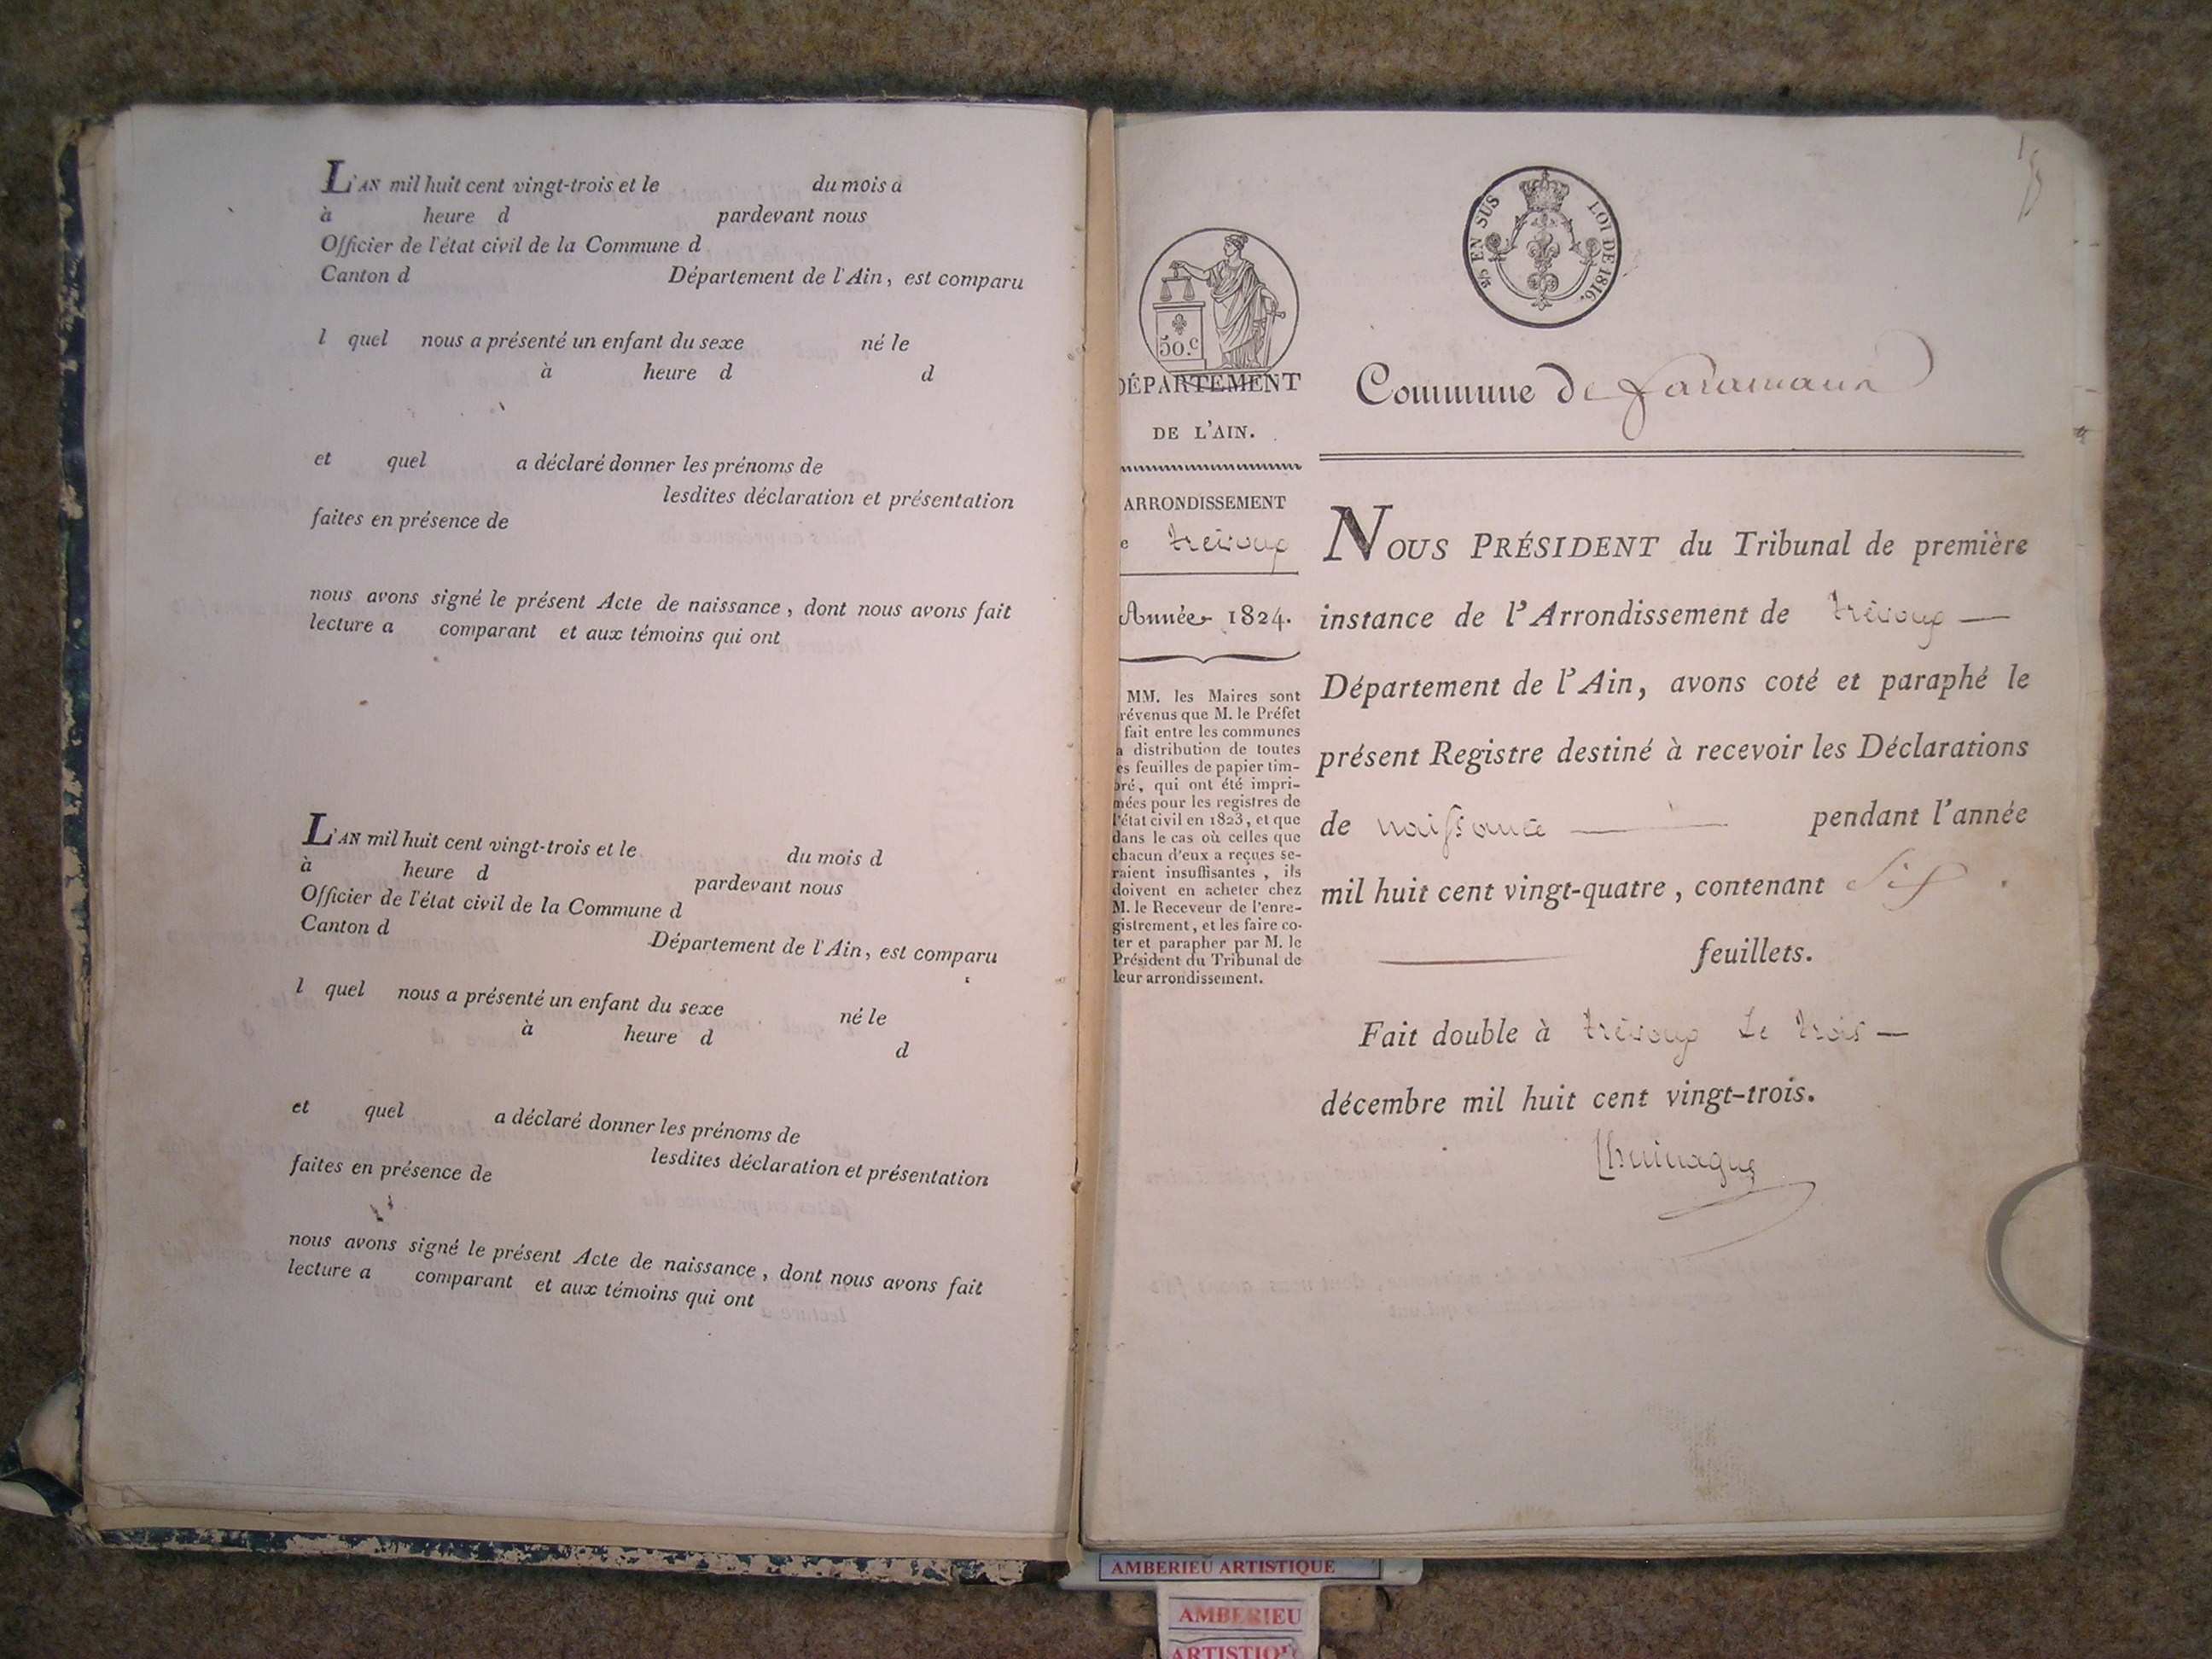 L'AN mil huit cent vingt-trois et le du mois d
à heure d pardevant nous
Officier de l'état civil de la Commune d
Canton d Département de l'Ain, est comparu
l quel nous a présenté un enfant du sexe né le
à heure d d
et quel a déclaré donner les prénoms de
lesdites déclaration et présentation
faites en présence de
nous avons signé le présent Acte de naissance, dont nous avons fait
lecture a comparant et aux témoins qui ont
L'AN mil huit cent vingt-trois et le du mois d
à heure d pardevant nous
Officier de l'état civil de la Commune d
Canton d Département de l'Ain, est comparu
l quel nous a présenté un enfant du sexe né le
à heure d d
et quel a déclaré donner les prénoms de
lesdites déclaration et présentation
faites en présence de
nous avons signé le présent Acte de naissance, dont nous avons fait
lecture a comparant et aux témoins qui ont
EN SUS LOI DE 1816.
50.c
DÉPARTEMENT
DE L'AIN.
ARRONDISSEMENT
e trévoux
Année 1824.
MM. les Maires sont
révenus que M. le Préfet
fait entre les communes
a distribution de toutes
es feuilles de papier tim-
bré, qui ont été impri-
mées pour les registres de
l'état civil en 1823, et que
dans le cas où celles que
chacun d'eux a reçues se-
raient insuffisantes, ils
doivent en acheter chez
M. le Receveur de l'enre-
gistrement, et les faire co-
ter et parapher par M. le
Président du Tribunal de
leur arrondissement.
Commune de faramans
NOUS PRÉSIDENT du Tribunal de première
instance de l'Arrondissement de trévoux —
Département de l'Ain, avons coté et paraphé le
présent Registre destiné à recevoir les Déclarations
de naissance — pendant l'année
mil huit cent vingt-quatre, contenant six
feuillets.
Fait double à trévoux le trois —
décembre mil huit cent vingt-trois.
AMBERIEU ARTISTIQUE
AMBERIEU
ARTISTIQUE